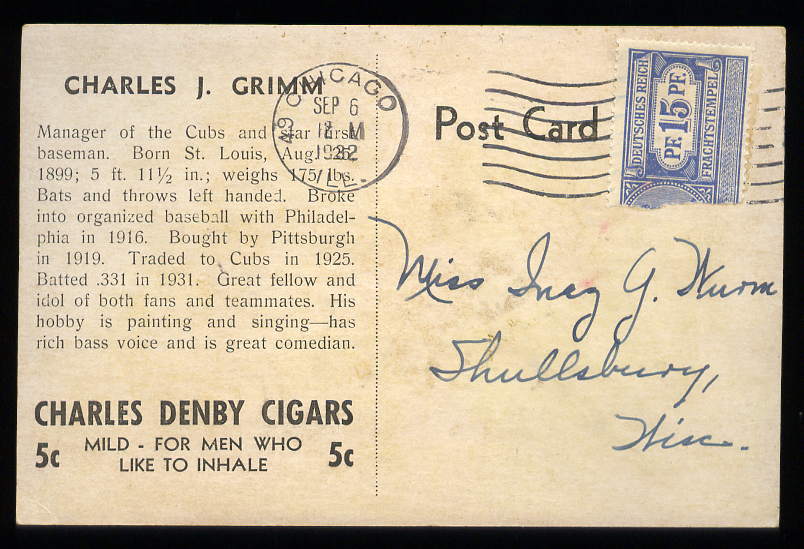 CHARLES J. GRIMM
Manager of the Cubs and star first
baseman. Born St. Louis, Aug. 28,
1899; 5 ft. 11½ in.; weighs 175 lbs.
Bats and throws left handed. Broke
into organized baseball with Philadel-
phia in 1916. Bought by Pittsburgh
in 1919. Traded to Cubs in 1925.
Batted .331 in 1931. Great fellow and
idol of both fans and teammates. His
hobby is painting and singing—has
rich bass voice and is great comedian.
CHARLES DENBY CIGARS
5c MILD - FOR MEN WHO 5c
LIKE TO INHALE
CHICAGO
SEP 6
12 M
ILL.
Post Card
DEUTSCHES REICH
PF 15 PF
FRACHTSTEMPEL
Miss Inez G. Wurm
Shullsburg,
Wisc.